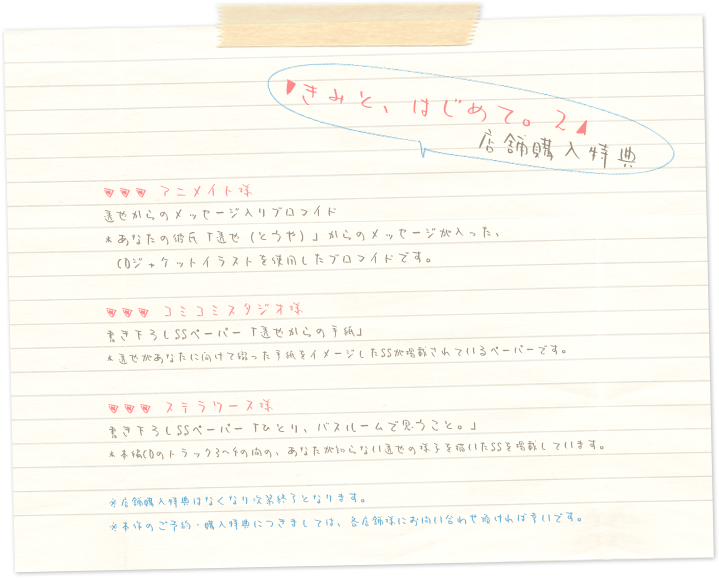 きみと、はじめて。2
店舗購入特典
アニメイト様
透也からのメッセージ入りブロマイド
*あなたの彼氏「透也（とうや）」からのメッセージが入った、
CDジャケットイラストを使用したブロマイドです。
コミコミスタジオ様
書き下ろしSSペーパー「透也からの手紙」
*透也があなたに向けて綴った手紙をイメージしたSSが掲載されているペーパーです。
ステラワース様
書き下ろしSSペーパー「ひとり、バスルームで思うこと。」
*本編CDのトラック3～4の間の、あなたが知らない透也の様子を描いたSSを掲載しています。
※店舗購入特典はなくなり次第終了となります。
※本作のご予約・購入特典につきましては、各店舗様にお問い合わせ頂ければ幸いです。